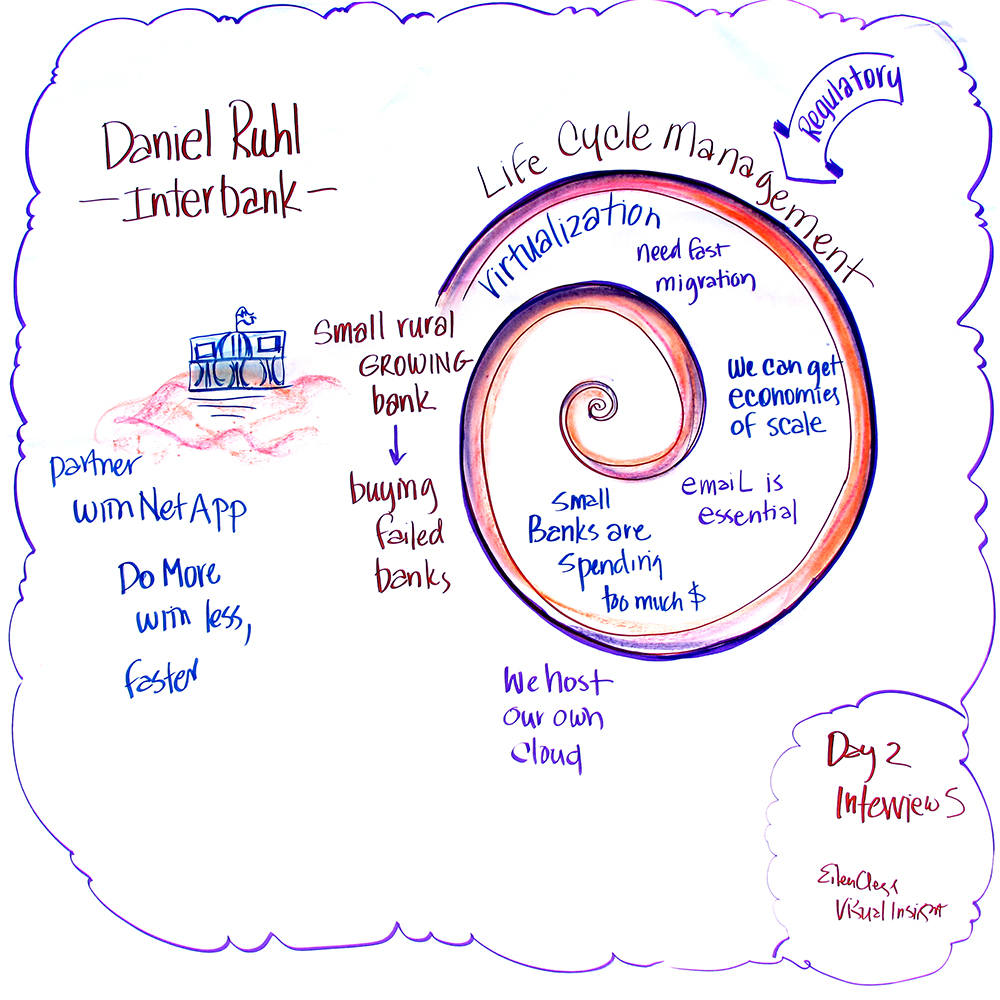 Daniel Ruhl
— Interbank —
Regulatory
Life Cycle Management
Virtualization
need fast
migration
Small rural
GROWING
bank
buying
failed
banks
We can get
economies
of scale
email is
essential
small
Banks are
spending
too much $
partner
with NetApp
Do More
with less,
faster
We host
our own
cloud
Day 2
Interviews
Visual Insight